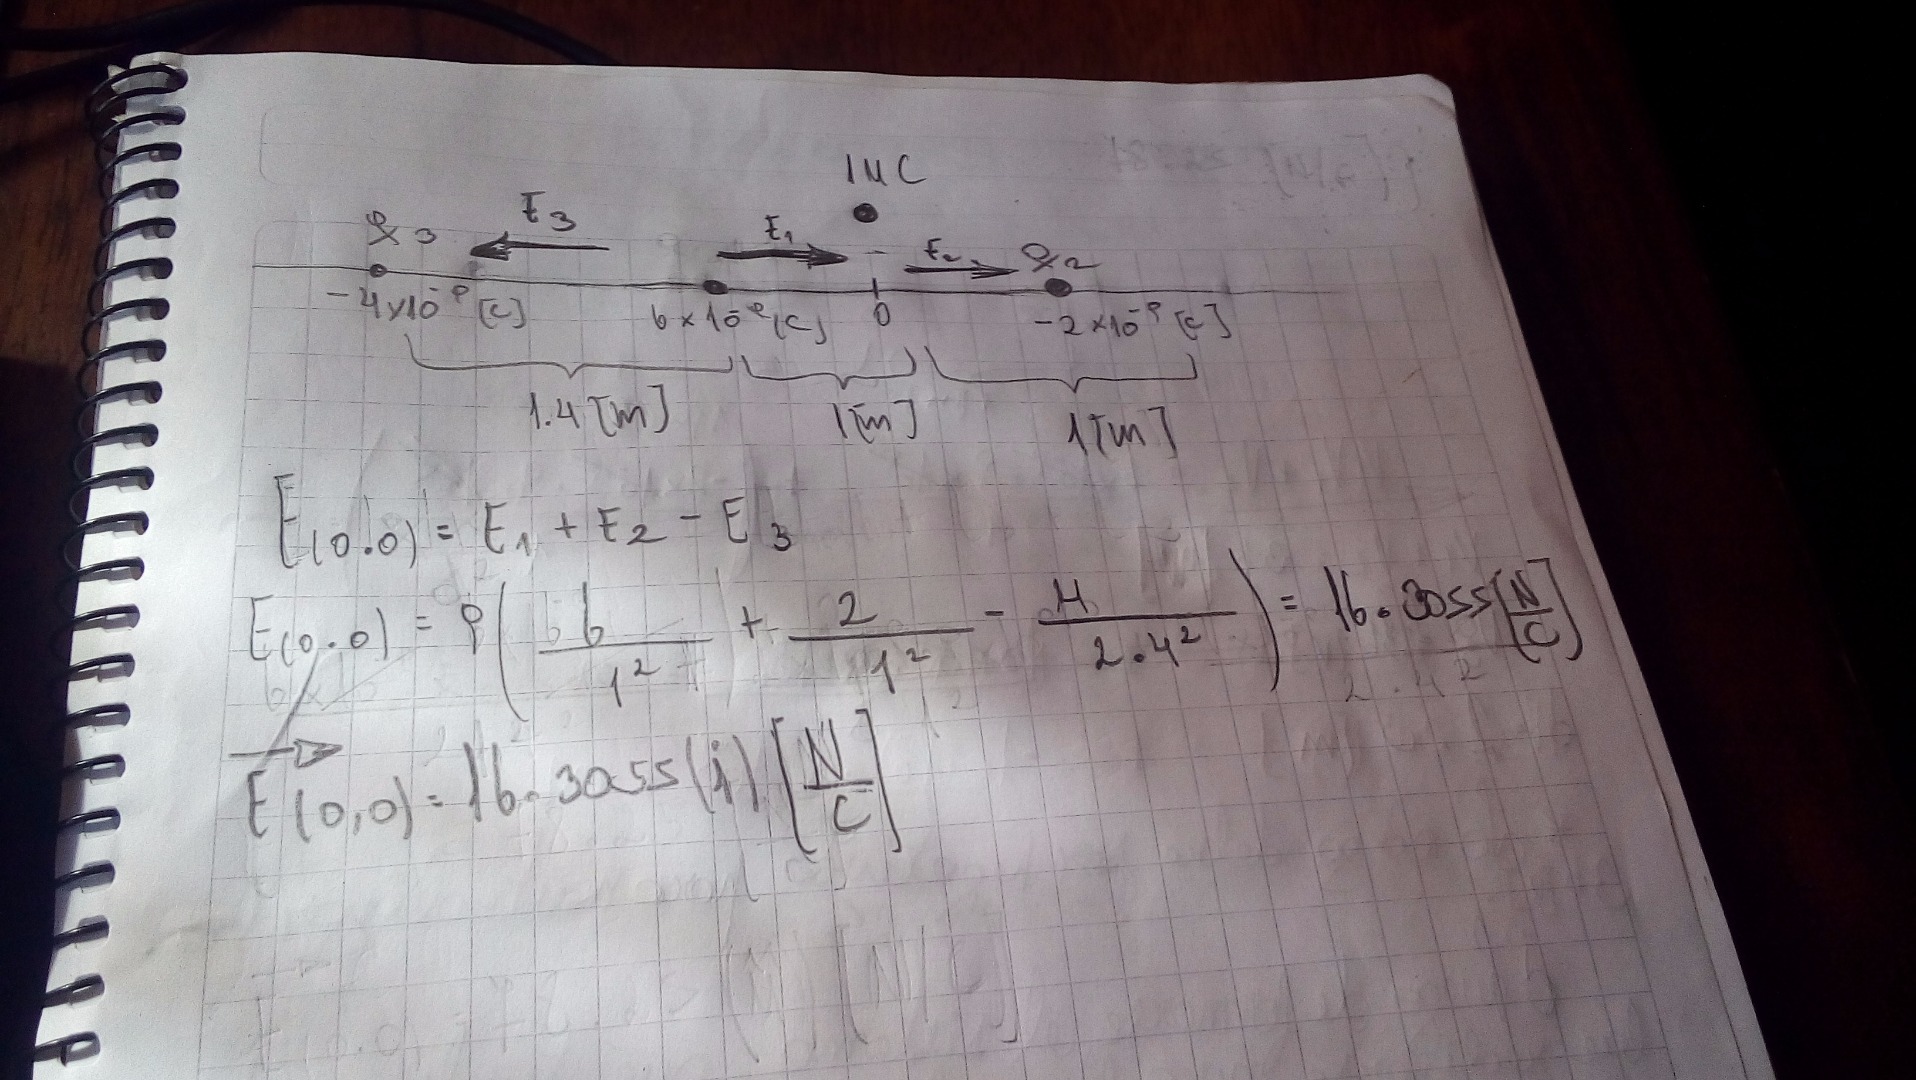 1MC
Q3 E3 E1 E2 Q2
-4x10⁻⁹ [C] 6x10⁻⁹ [C] 0 -2x10⁻⁹ [C]
1.4 [m] 1[m] 1[m]
E(0.0) = E1 + E2 - E3
E(0.0) = 9( 6/1² + 2/1² - 4/2.4² ) = 16.3055 [N/C]
E(0,0) = 16.3055 (i) [N/C]